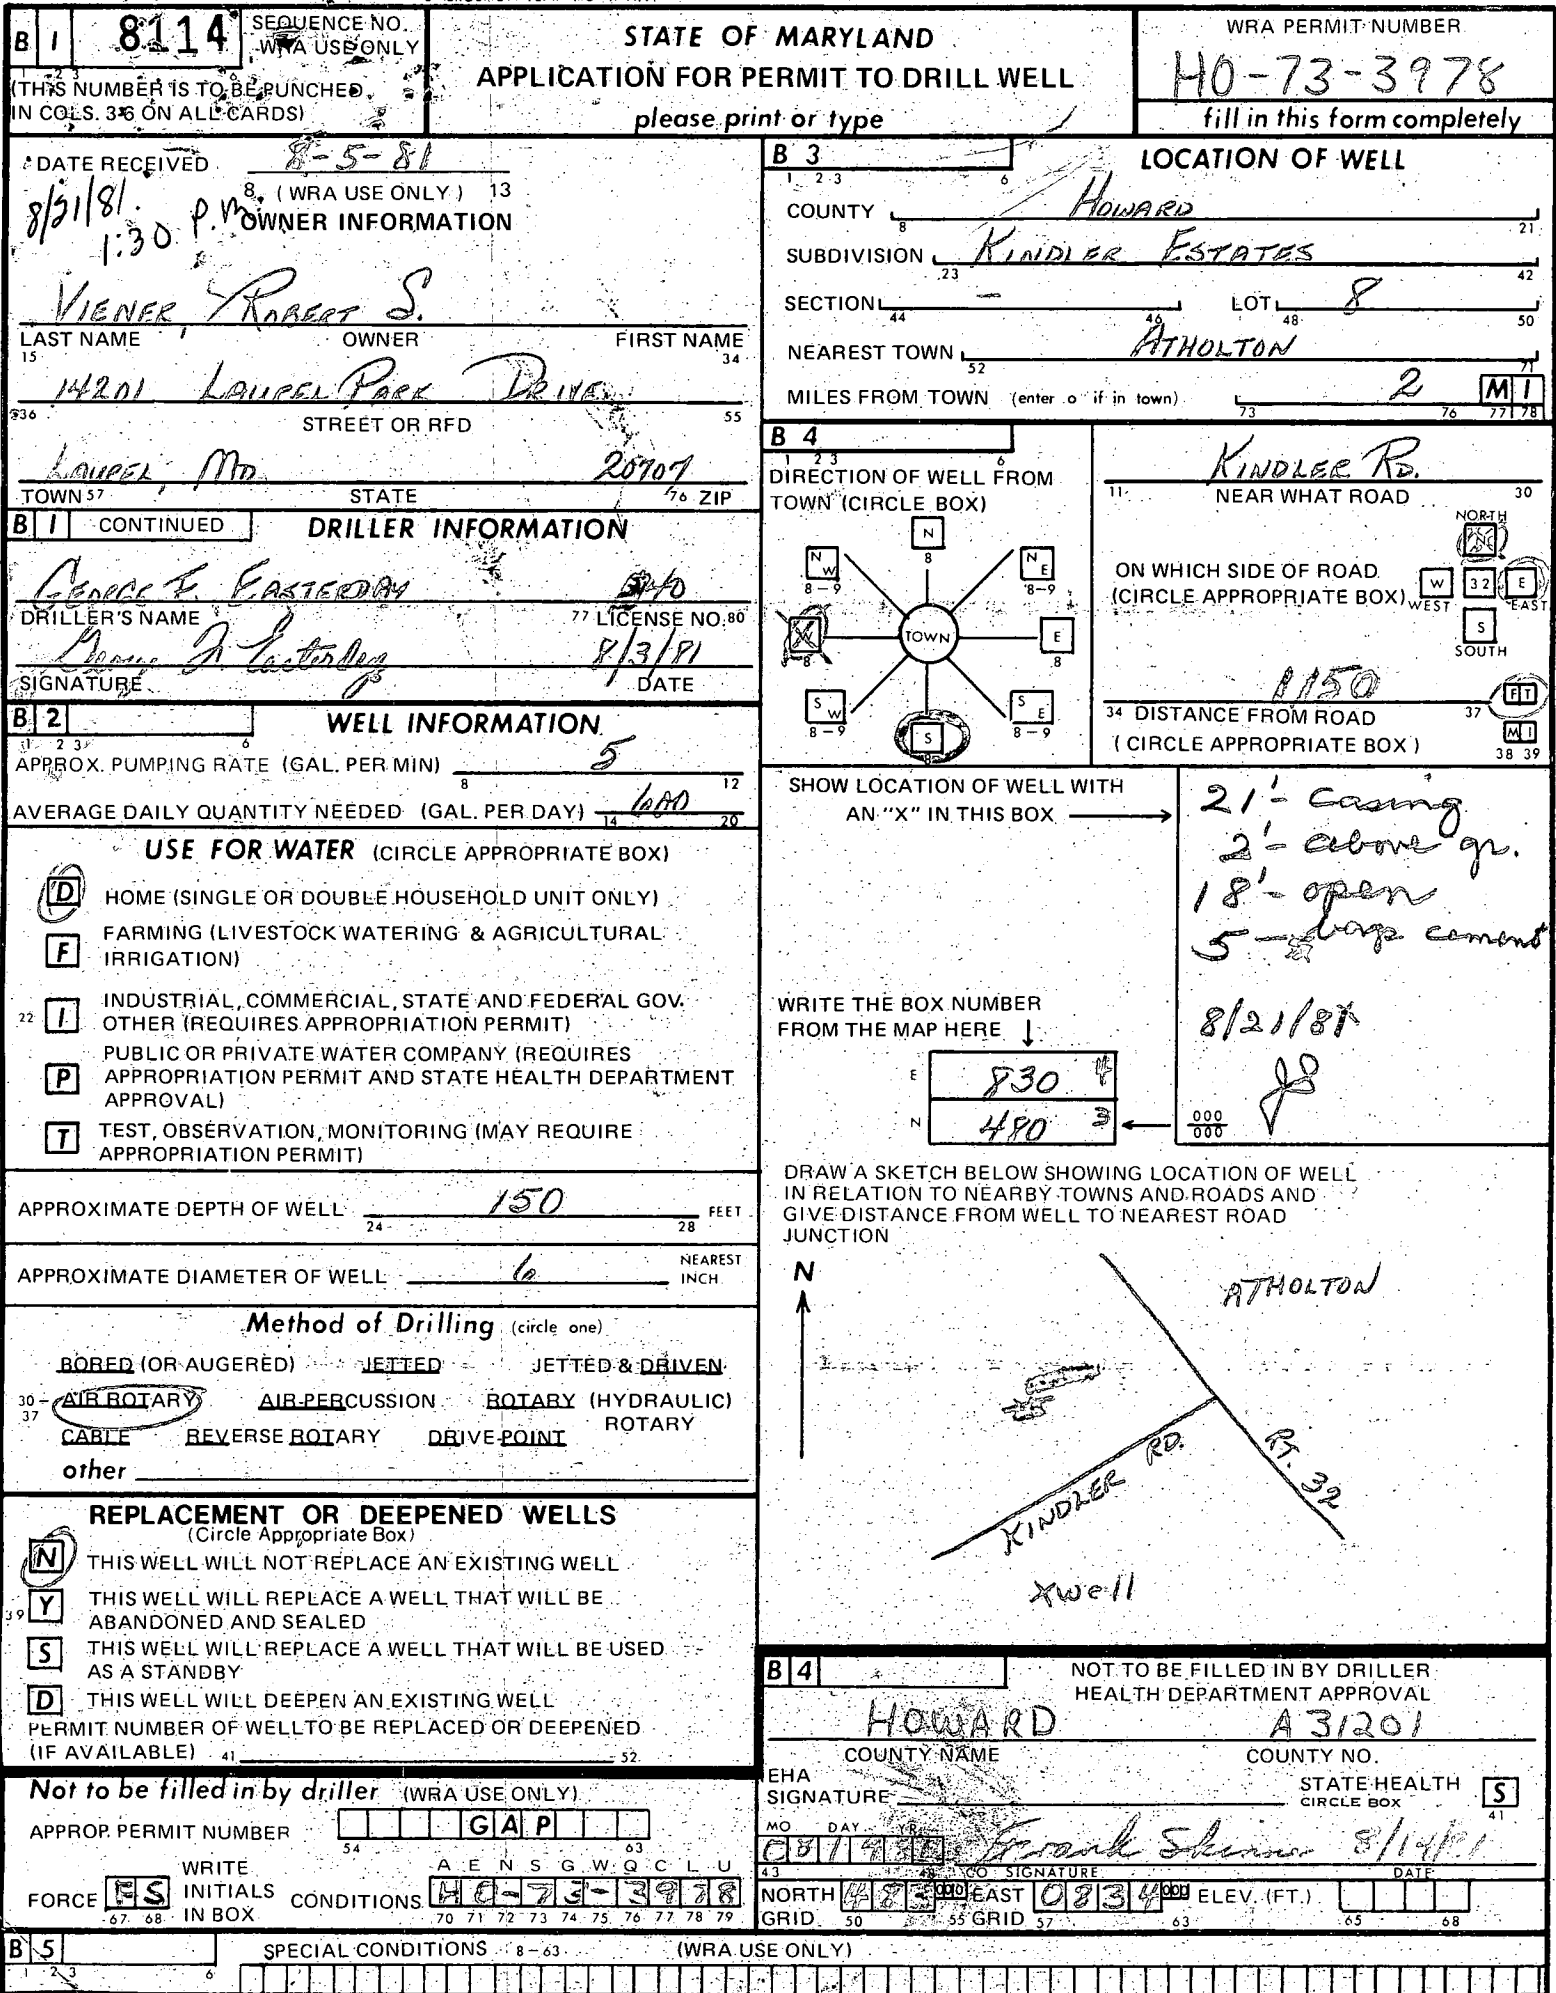 B 1 8114 SEQUENCE NO.
WRA USE ONLY
(THIS NUMBER IS TO BE PUNCHED
IN COLS. 3-6 ON ALL CARDS)
STATE OF MARYLAND
APPLICATION FOR PERMIT TO DRILL WELL
please print or type
WRA PERMIT NUMBER
HO-73-3978
fill in this form completely
DATE RECEIVED 8-5-81
8 (WRA USE ONLY) 13
8/21/81
1:30 P.M.
OWNER INFORMATION
VIENER, ROBERT S.
LAST NAME OWNER FIRST NAME
15 34
14201 LAUREL PARK DRIVE
36 STREET OR RFD 55
LAUREL, MD 20707
TOWN 57 STATE 76 ZIP
B 1 CONTINUED DRILLER INFORMATION
GEORGE F. EASTERDAY 40
DRILLER'S NAME 77 LICENSE NO. 80
George F. Easterday 8/3/81
SIGNATURE DATE
B 2 WELL INFORMATION
1 2 3 6
APPROX. PUMPING RATE (GAL. PER MIN) 5
8 12
AVERAGE DAILY QUANTITY NEEDED (GAL. PER DAY) 600
14 20
USE FOR WATER (CIRCLE APPROPRIATE BOX)
D HOME (SINGLE OR DOUBLE HOUSEHOLD UNIT ONLY)
F FARMING (LIVESTOCK WATERING & AGRICULTURAL
IRRIGATION)
22 I INDUSTRIAL, COMMERCIAL, STATE AND FEDERAL GOV.
OTHER (REQUIRES APPROPRIATION PERMIT)
P PUBLIC OR PRIVATE WATER COMPANY (REQUIRES
APPROPRIATION PERMIT AND STATE HEALTH DEPARTMENT
APPROVAL)
T TEST, OBSERVATION, MONITORING (MAY REQUIRE
APPROPRIATION PERMIT)
APPROXIMATE DEPTH OF WELL 150 FEET
24 28
APPROXIMATE DIAMETER OF WELL 6 NEAREST
INCH
Method of Drilling (circle one)
BORED (OR AUGERED) JETTED JETTED & DRIVEN
30-37 AIR ROTARY AIR-PERCUSSION ROTARY (HYDRAULIC)
ROTARY
CABLE REVERSE ROTARY DRIVE-POINT
other
REPLACEMENT OR DEEPENED WELLS
(Circle Appropriate Box)
N THIS WELL WILL NOT REPLACE AN EXISTING WELL
39 Y THIS WELL WILL REPLACE A WELL THAT WILL BE
ABANDONED AND SEALED
S THIS WELL WILL REPLACE A WELL THAT WILL BE USED
AS A STANDBY
D THIS WELL WILL DEEPEN AN EXISTING WELL
PERMIT NUMBER OF WELL TO BE REPLACED OR DEEPENED
(IF AVAILABLE) 41 52
Not to be filled in by driller (WRA USE ONLY)
APPROP. PERMIT NUMBER GAP
54 63
FORCE FS WRITE
INITIALS
IN BOX
67 68
A E N S G W Q C L U
CONDITIONS HO-73-3978
70 71 72 73 74 75 76 77 78 79
B 3 LOCATION OF WELL
1 2 3 6
COUNTY HOWARD
8 21
SUBDIVISION KINDLER ESTATES
23 42
SECTION - LOT 8
44 46 48 50
NEAREST TOWN ATHOLTON
52 71
MILES FROM TOWN (enter o if in town) 2 MI
73 76 77 78
B 4
1 2 3 6
DIRECTION OF WELL FROM
TOWN (CIRCLE BOX)
N
8
NW NE
8-9 8-9
W TOWN E
8 8
SW SE
8-9 8-9
S
KINDLER RD.
11 NEAR WHAT ROAD 30
NORTH
ON WHICH SIDE OF ROAD
(CIRCLE APPROPRIATE BOX)
W 32 E
WEST EAST
S
SOUTH
1150 FT
34 DISTANCE FROM ROAD 37
(CIRCLE APPROPRIATE BOX) MI
38 39
SHOW LOCATION OF WELL WITH
AN "X" IN THIS BOX
21'- Casing
2'- above gr.
18'- open
5 - bags cement
8/21/81
JS
WRITE THE BOX NUMBER
FROM THE MAP HERE
E 830 4
N 480 3
000
000
DRAW A SKETCH BELOW SHOWING LOCATION OF WELL
IN RELATION TO NEARBY TOWNS AND ROADS AND
GIVE DISTANCE FROM WELL TO NEAREST ROAD
JUNCTION
N
ATHOLTON
KINDLER RD.
RT. 32
X well
B 4 NOT TO BE FILLED IN BY DRILLER
HEALTH DEPARTMENT APPROVAL
HOWARD A 31201
COUNTY NAME COUNTY NO.
EHA
SIGNATURE
STATE HEALTH
CIRCLE BOX S
41
MO DAY YR
43 48
Frank Skinner
CO SIGNATURE DATE
NORTH 483 000 EAST 0834 000 ELEV. (FT.)
GRID 50 55 GRID 57 63 65 68
B 5 SPECIAL CONDITIONS 8-63 (WRA USE ONLY)
1 2 3 6